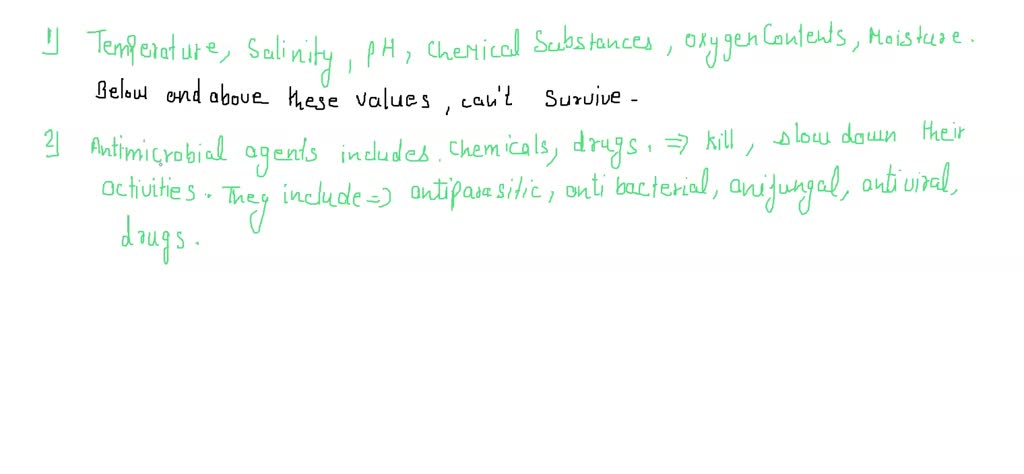 1] Temperature, Salinity, pH, Chemical Substances, oxygen Contents, Moisture.
Below and above these values, can't Survive -
2] Antimicrobial agents includes. Chemicals, drugs. ⇒ kill, slow down their
activities. They include => antiparasitic, anti bacterial, anifungal, antiviral,
drugs.